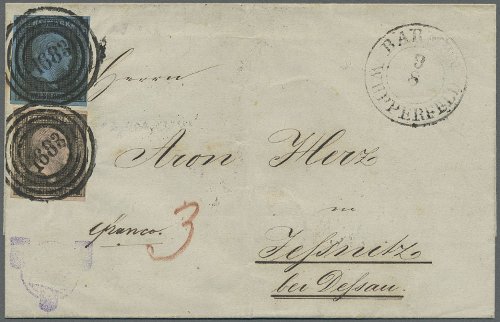 1682
1682
BARMEN
9
8
WUPPERFELD
Herrn
Aron Herz
in
Jeßnitz
bei Dessau.
franco.
3